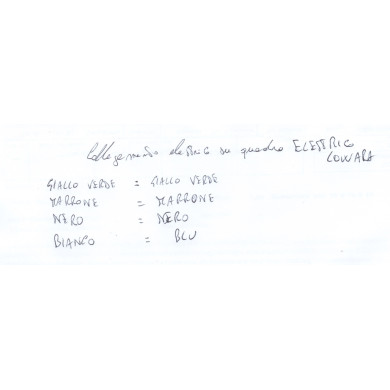 Collegamento elettrico su quadro ELETTRICO
LOWARA
GIALLO VERDE = GIALLO VERDE
MARRONE = MARRONE
NERO = NERO
BIANCO = BLU